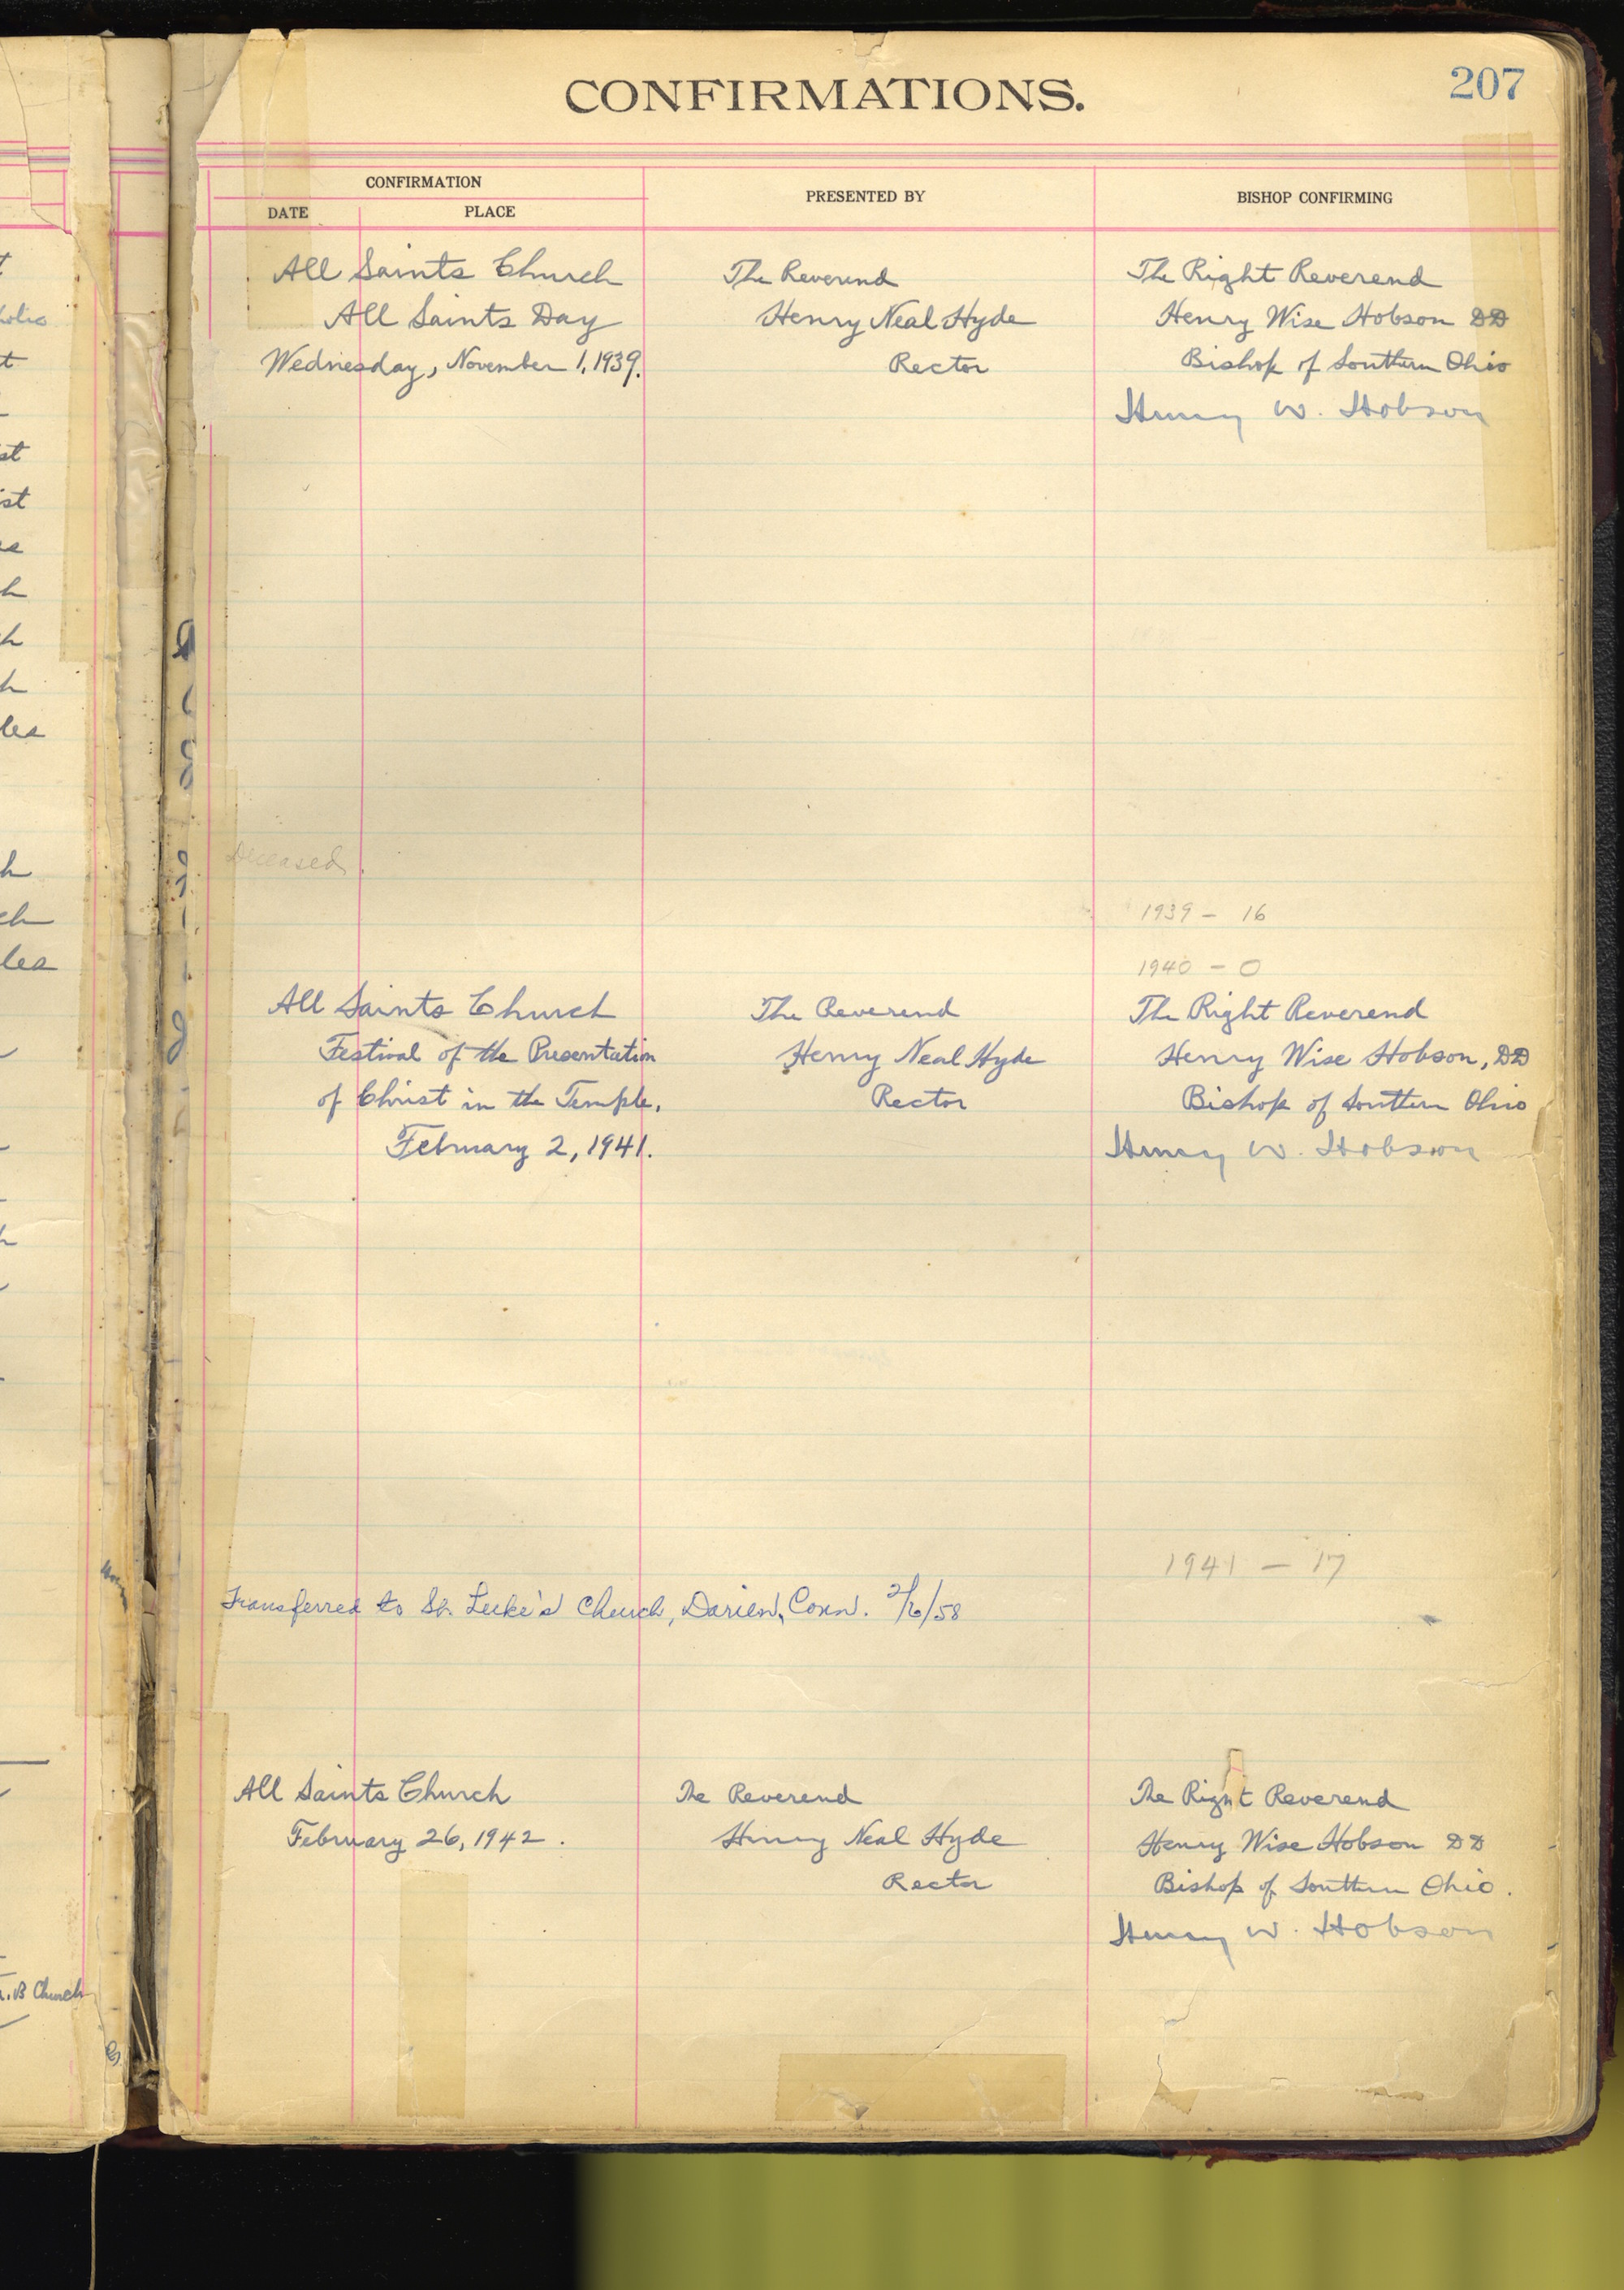 CONFIRMATIONS.
207
CONFIRMATION
DATE
PLACE
PRESENTED BY
BISHOP CONFIRMING
All Saints Church
All Saints Day
Wednesday, November 1, 1939.
The Reverend
Henry Neal Hyde
Rector
The Right Reverend
Henry Wise Hobson DD
Bishop of Southern Ohio
Henry W. Hobson
Deceased
1939 - 16
1940 - 0
All Saints Church
Festival of the Presentation
of Christ in the Temple.
February 2, 1941.
The Reverend
Henry Neal Hyde
Rector
The Right Reverend
Henry Wise Hobson, DD
Bishop of Southern Ohio
Henry W. Hobson
1941 - 17
Transferred to St. Luke's Church, Darien, Conn. 2/6/58
All Saints Church
February 26, 1942.
The Reverend
Henry Neal Hyde
Rector
The Right Reverend
Henry Wise Hobson DD
Bishop of Southern Ohio.
Henry W. Hobson
B Church